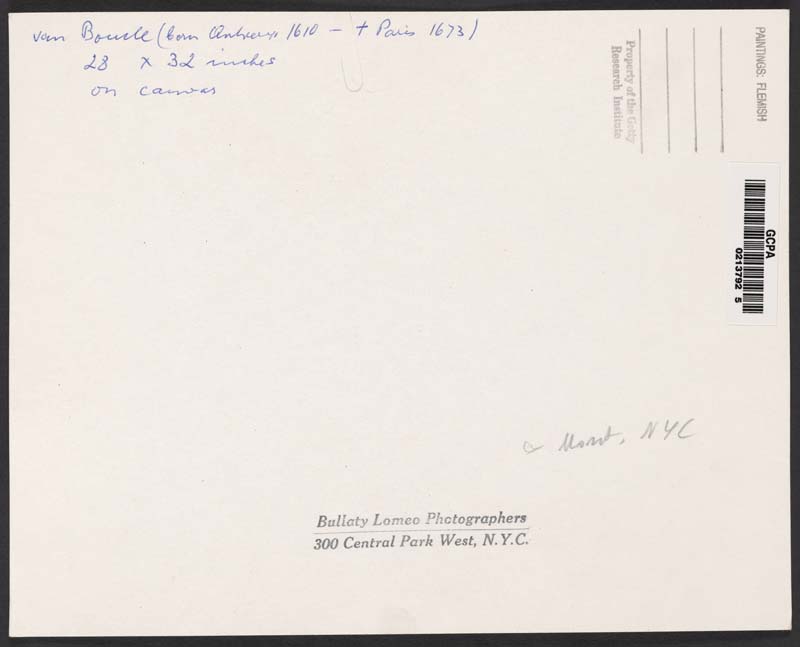 van Boucle (born Antwerp 1610 - † Paris 1673)
28 x 32 inches
on canvas
Property of the Getty
Research Institute
PAINTINGS: FLEMISH
GCPA
0213792 5
NYC
Bullaty Lomeo Photographers
300 Central Park West, N.Y.C.